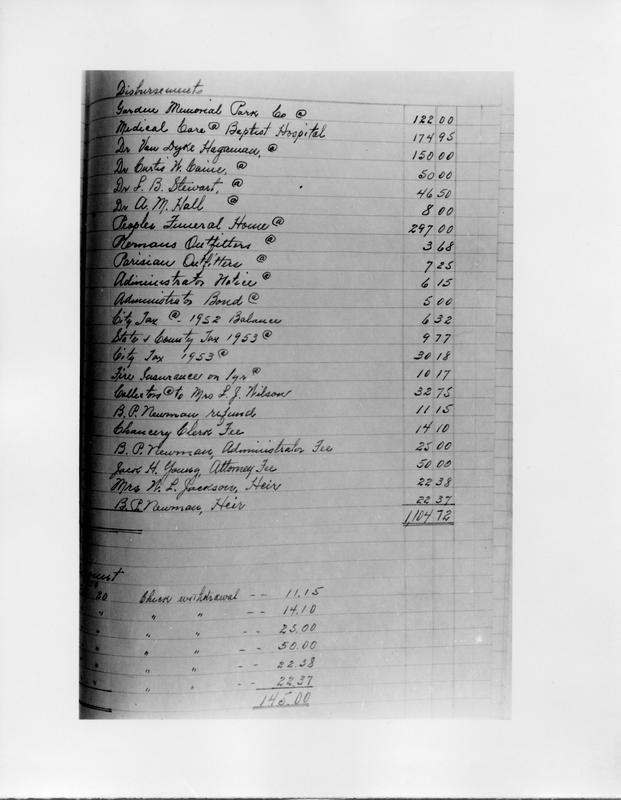 Disbursements
Garden Memorial Park Co @ 122 00
Medical Care @ Baptist Hospital 174 95
Dr Van Dyke Hagaman, @ 150 00
Dr Curtis W. Caine, @ 50 00
Dr L. B. Stewart, @ 46 50
Dr A. M. Hall @ 8 00
Peoples Funeral Home @ 297 00
Outfitters @ 3 68
Parisian Outfitters @ 7 25
Administrator Notice @ 6 15
Administrator Bond @ 5 00
City Tax @ - 1952 Balance 6 32
State & County Tax 1953 @ 9 77
City Tax 1953 @ 30 18
Fire Insurance on 1 yr @ 10 17
Collectors @ to Mrs L. J. Wilson 32 75
B. P. Newman refund 11 15
Chancery Clerk Fee 14 10
B. P. Newman, Administrator Fee 25 00
Jack H. Young, Attorney Fee 50.00
Mrs W. L. Jackson, Heir 22 38
B. P. Newman, Heir 22 37
1,104 72
20 Check withdrawal -- 11.15
" " " -- 14.10
" " " -- 25.00
" " " -- 50.00
" " " -- 22.38
" " " -- 22.37
145.00